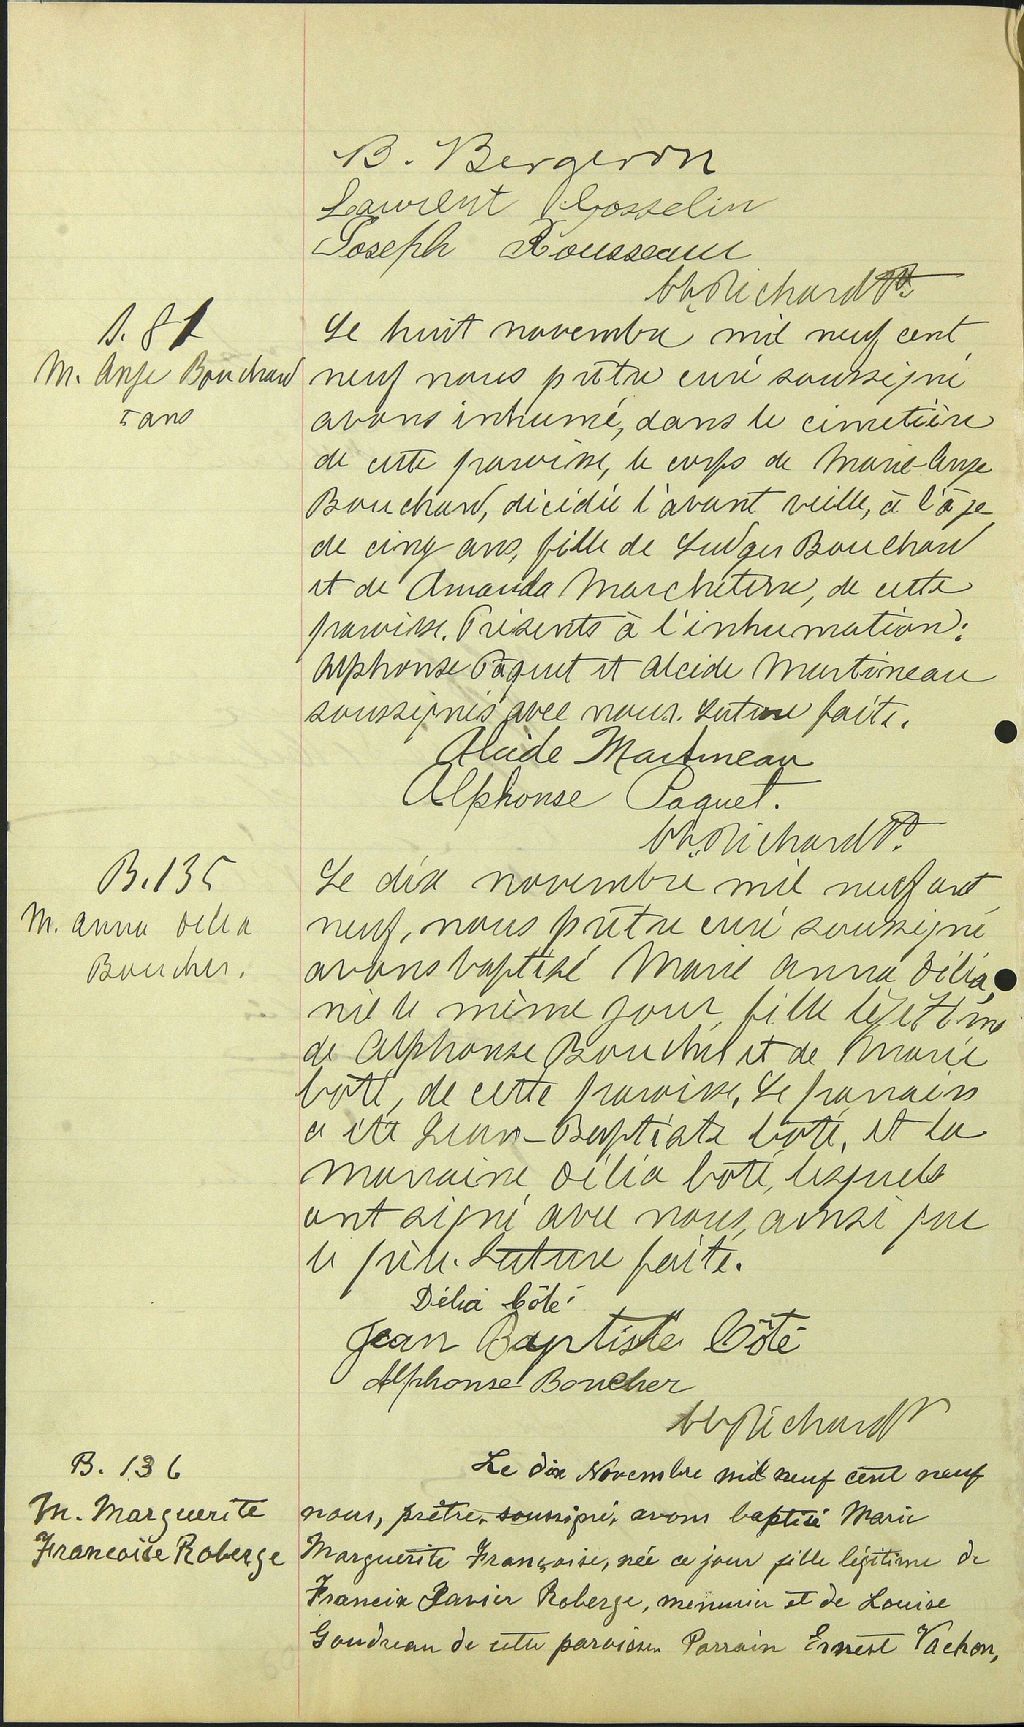 B. Bergeron
Laurent Gosselin
Joseph Rousseau
Ch. Richard Pt.
S. 81
M. Ange Bouchard
5 ans
Le huit novembre mil neuf cent
neuf nous prêtre curé soussigné
avons inhumé, dans le cimetière
de cette paroisse, le corps de Marie-Ange
Bouchard, décédée l'avant veille, à l'âge
de cinq ans, fille de Ludger Bouchard
et de Amanda Marcheterre, de cette
paroisse. Présents à l'inhumation:
Alphonse Paquet et Alcide Martineau
soussignés avec nous. Lecture faite.
Alcide Martineau
Alphonse Paquet.
Ch. Richard Pt.
B. 135
M. Anna Délia
Boucher.
Le dix novembre mil neuf cent
neuf, nous prêtre curé soussigné
avons baptisé Marie Anna Délia,
née le même jour, fille légitime
de Alphonse Boucher et de Marie
Côté, de cette paroisse. Le parrain
a été Jean-Baptiste Côté, et la
marraine Délia Côté, lesquels
ont signé avec nous, ainsi que
le père. Lecture faite.
Délia Côté
Jean Baptiste Côté
Alphonse Boucher
Ch. Richard Pt
B. 136
M. Marguerite
Francoise Roberge
Le dix Novembre mil neuf cent neuf
nous, prêtre, soussigné, avons baptisé Marie
Marguerite Françoise, née ce jour fille légitime de
Francix Xavier Roberge, menuisier et de Louise
Goudreau de cette paroisse. Parrain Ernest Vachon,